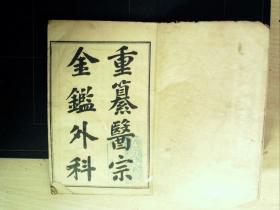 重纂醫宗
金鑑外科